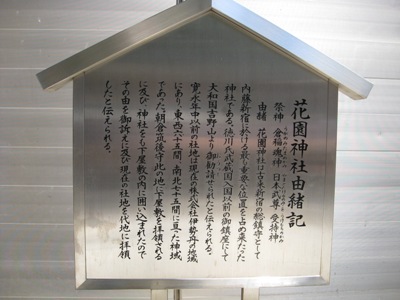 花園神社由緒記
祭神 倉稲魂神 日本武尊 受持神
由緒 花園神社は古来新宿の総鎮守として
内藤新宿に於ける最も重要な位置を占め来たった
神社である。徳川氏武蔵国入国以前の御鎮座にして
大和国吉野山より御勧請せられたと伝えられる。
寛永年中以前の社地は現在の株式会社伊勢丹の地域
にあり、東西六十五間、南北七十五間に亘った神域
であった。朝倉筑後守此の地に下屋敷を拝領される
に及び、神社をも下屋敷の内に囲い込まれたので
その由を御訴えに及び現在の社地を代地に拝領
したと伝えられる。